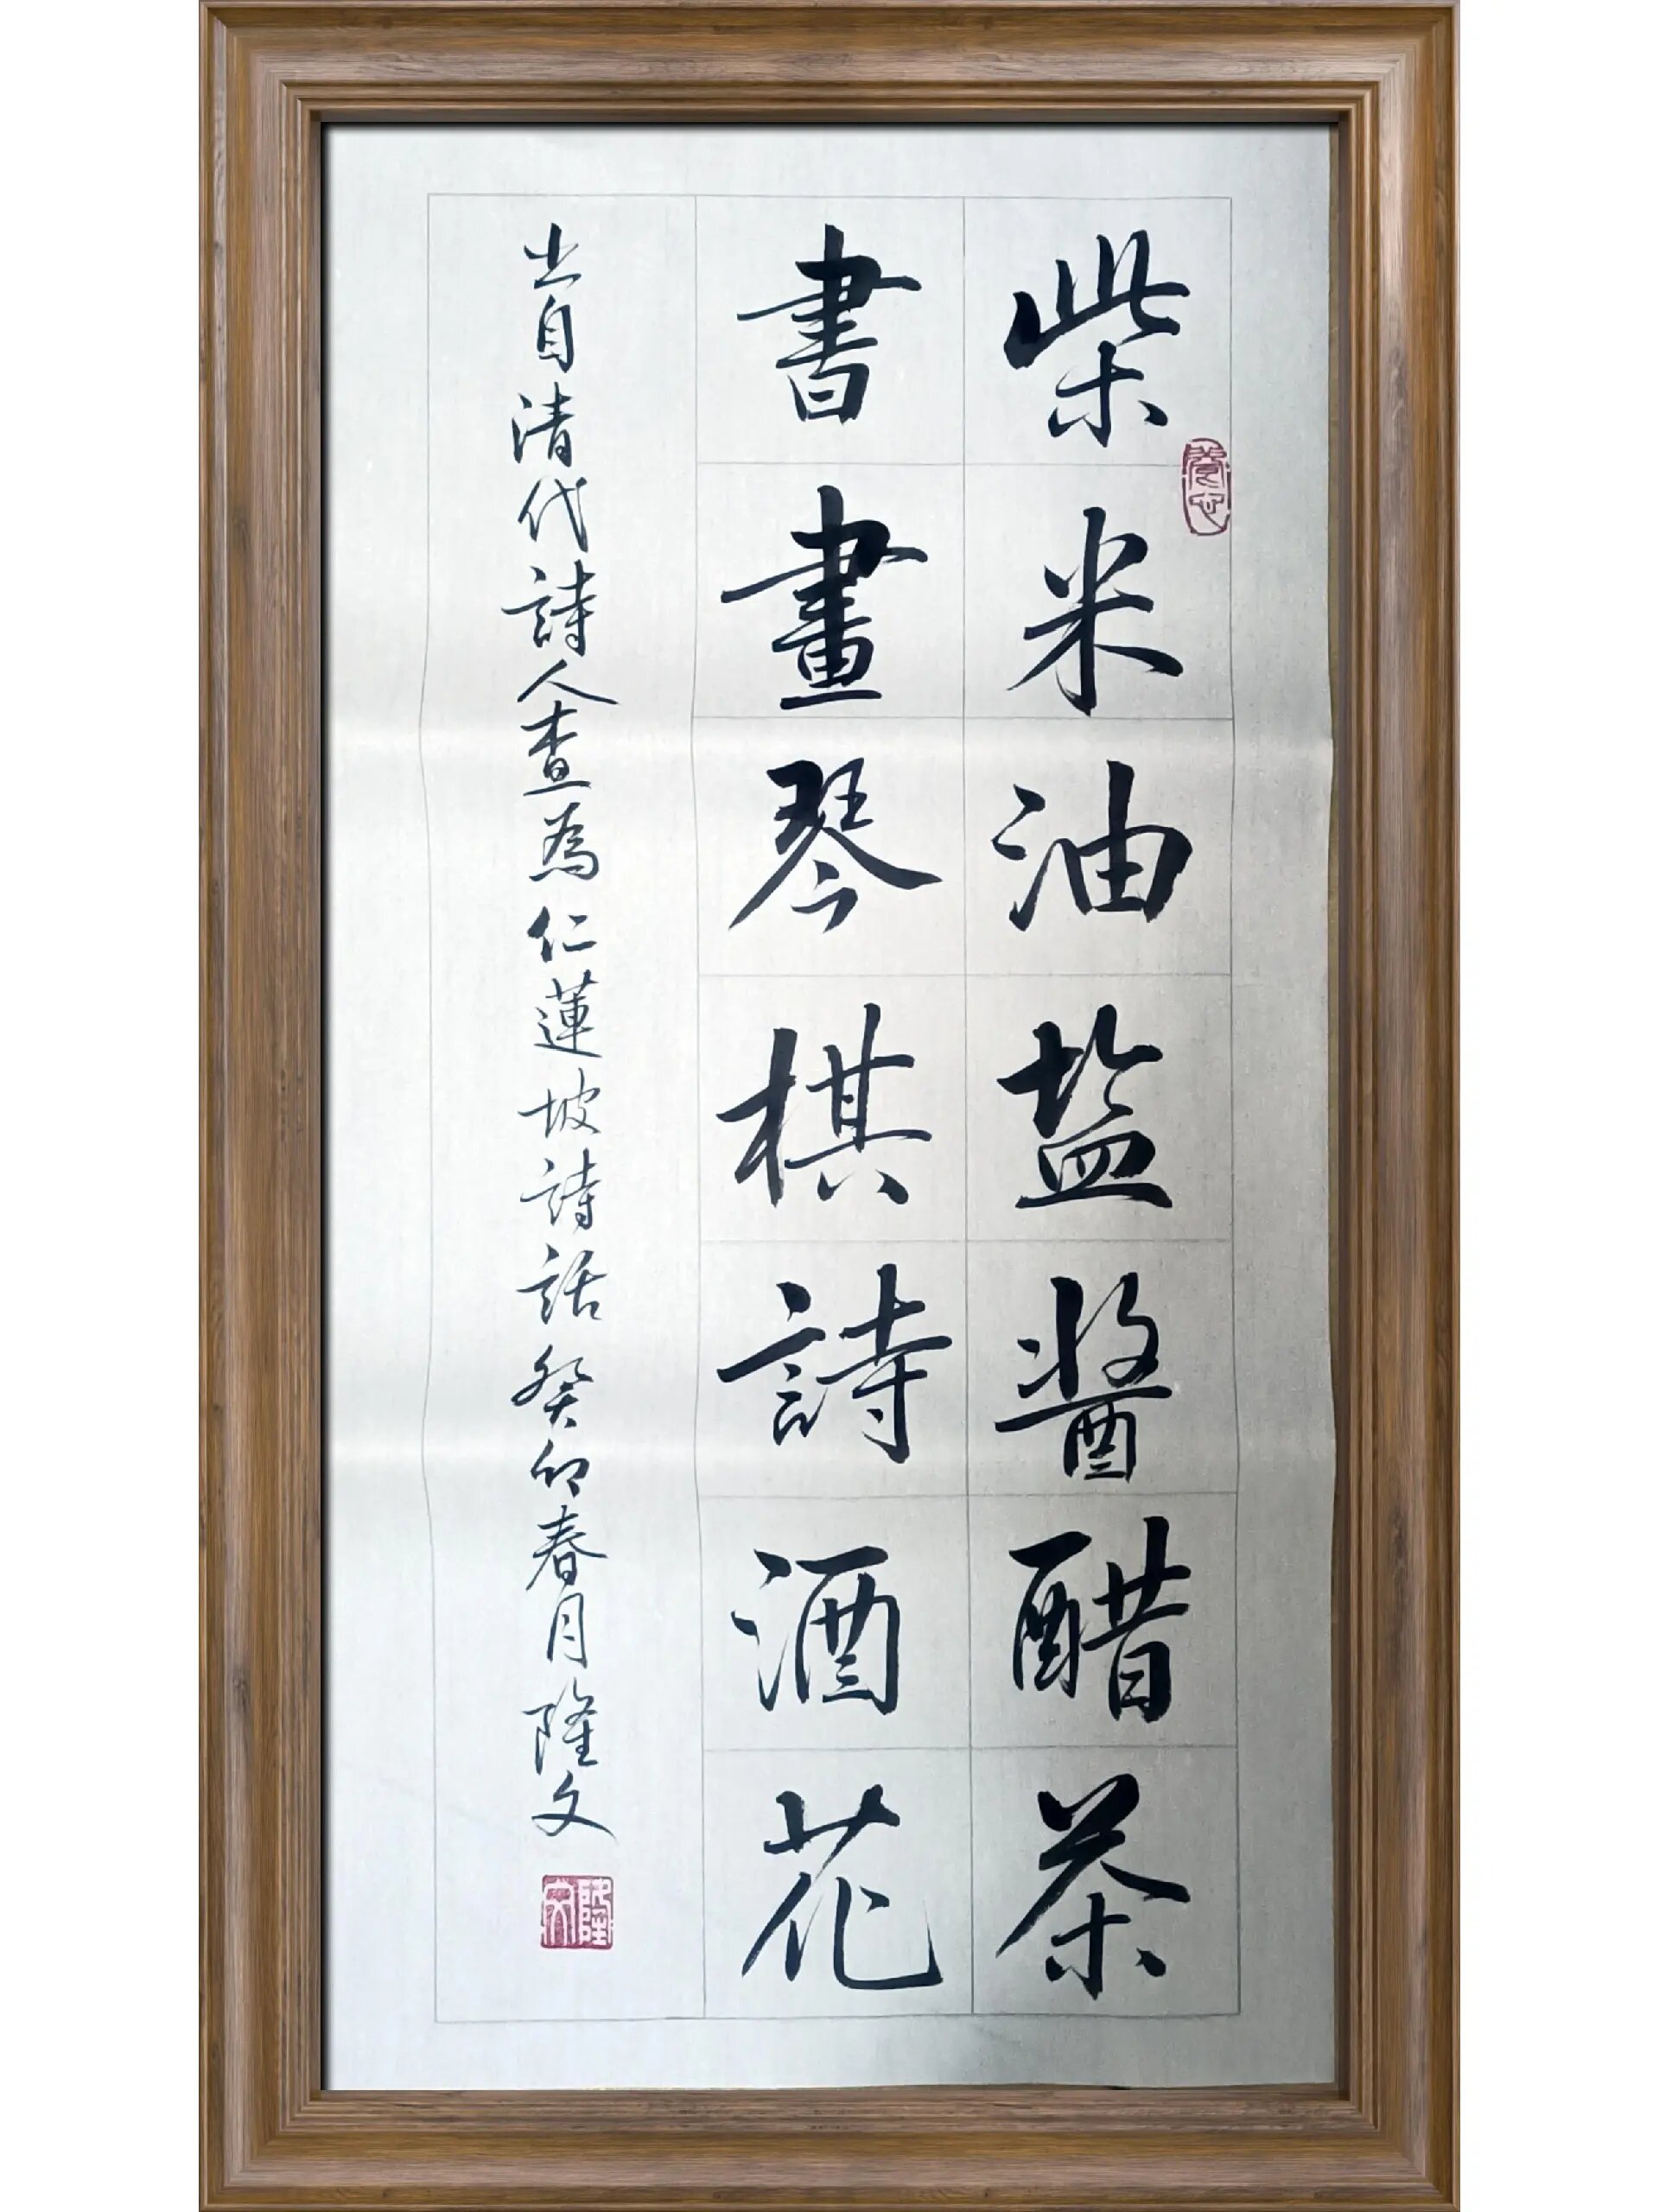 柴米油盐醬醋茶
書畫琴棋詩酒花
出自清代詩人查為仁蓮坡詩話 癸卯春月 隆文
隆文